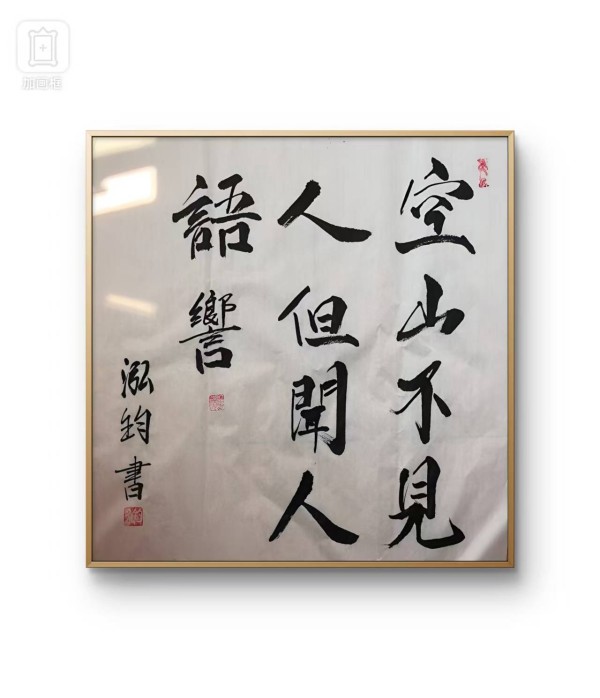 加画框
空山不見
人但聞人
語響
泓鈞書